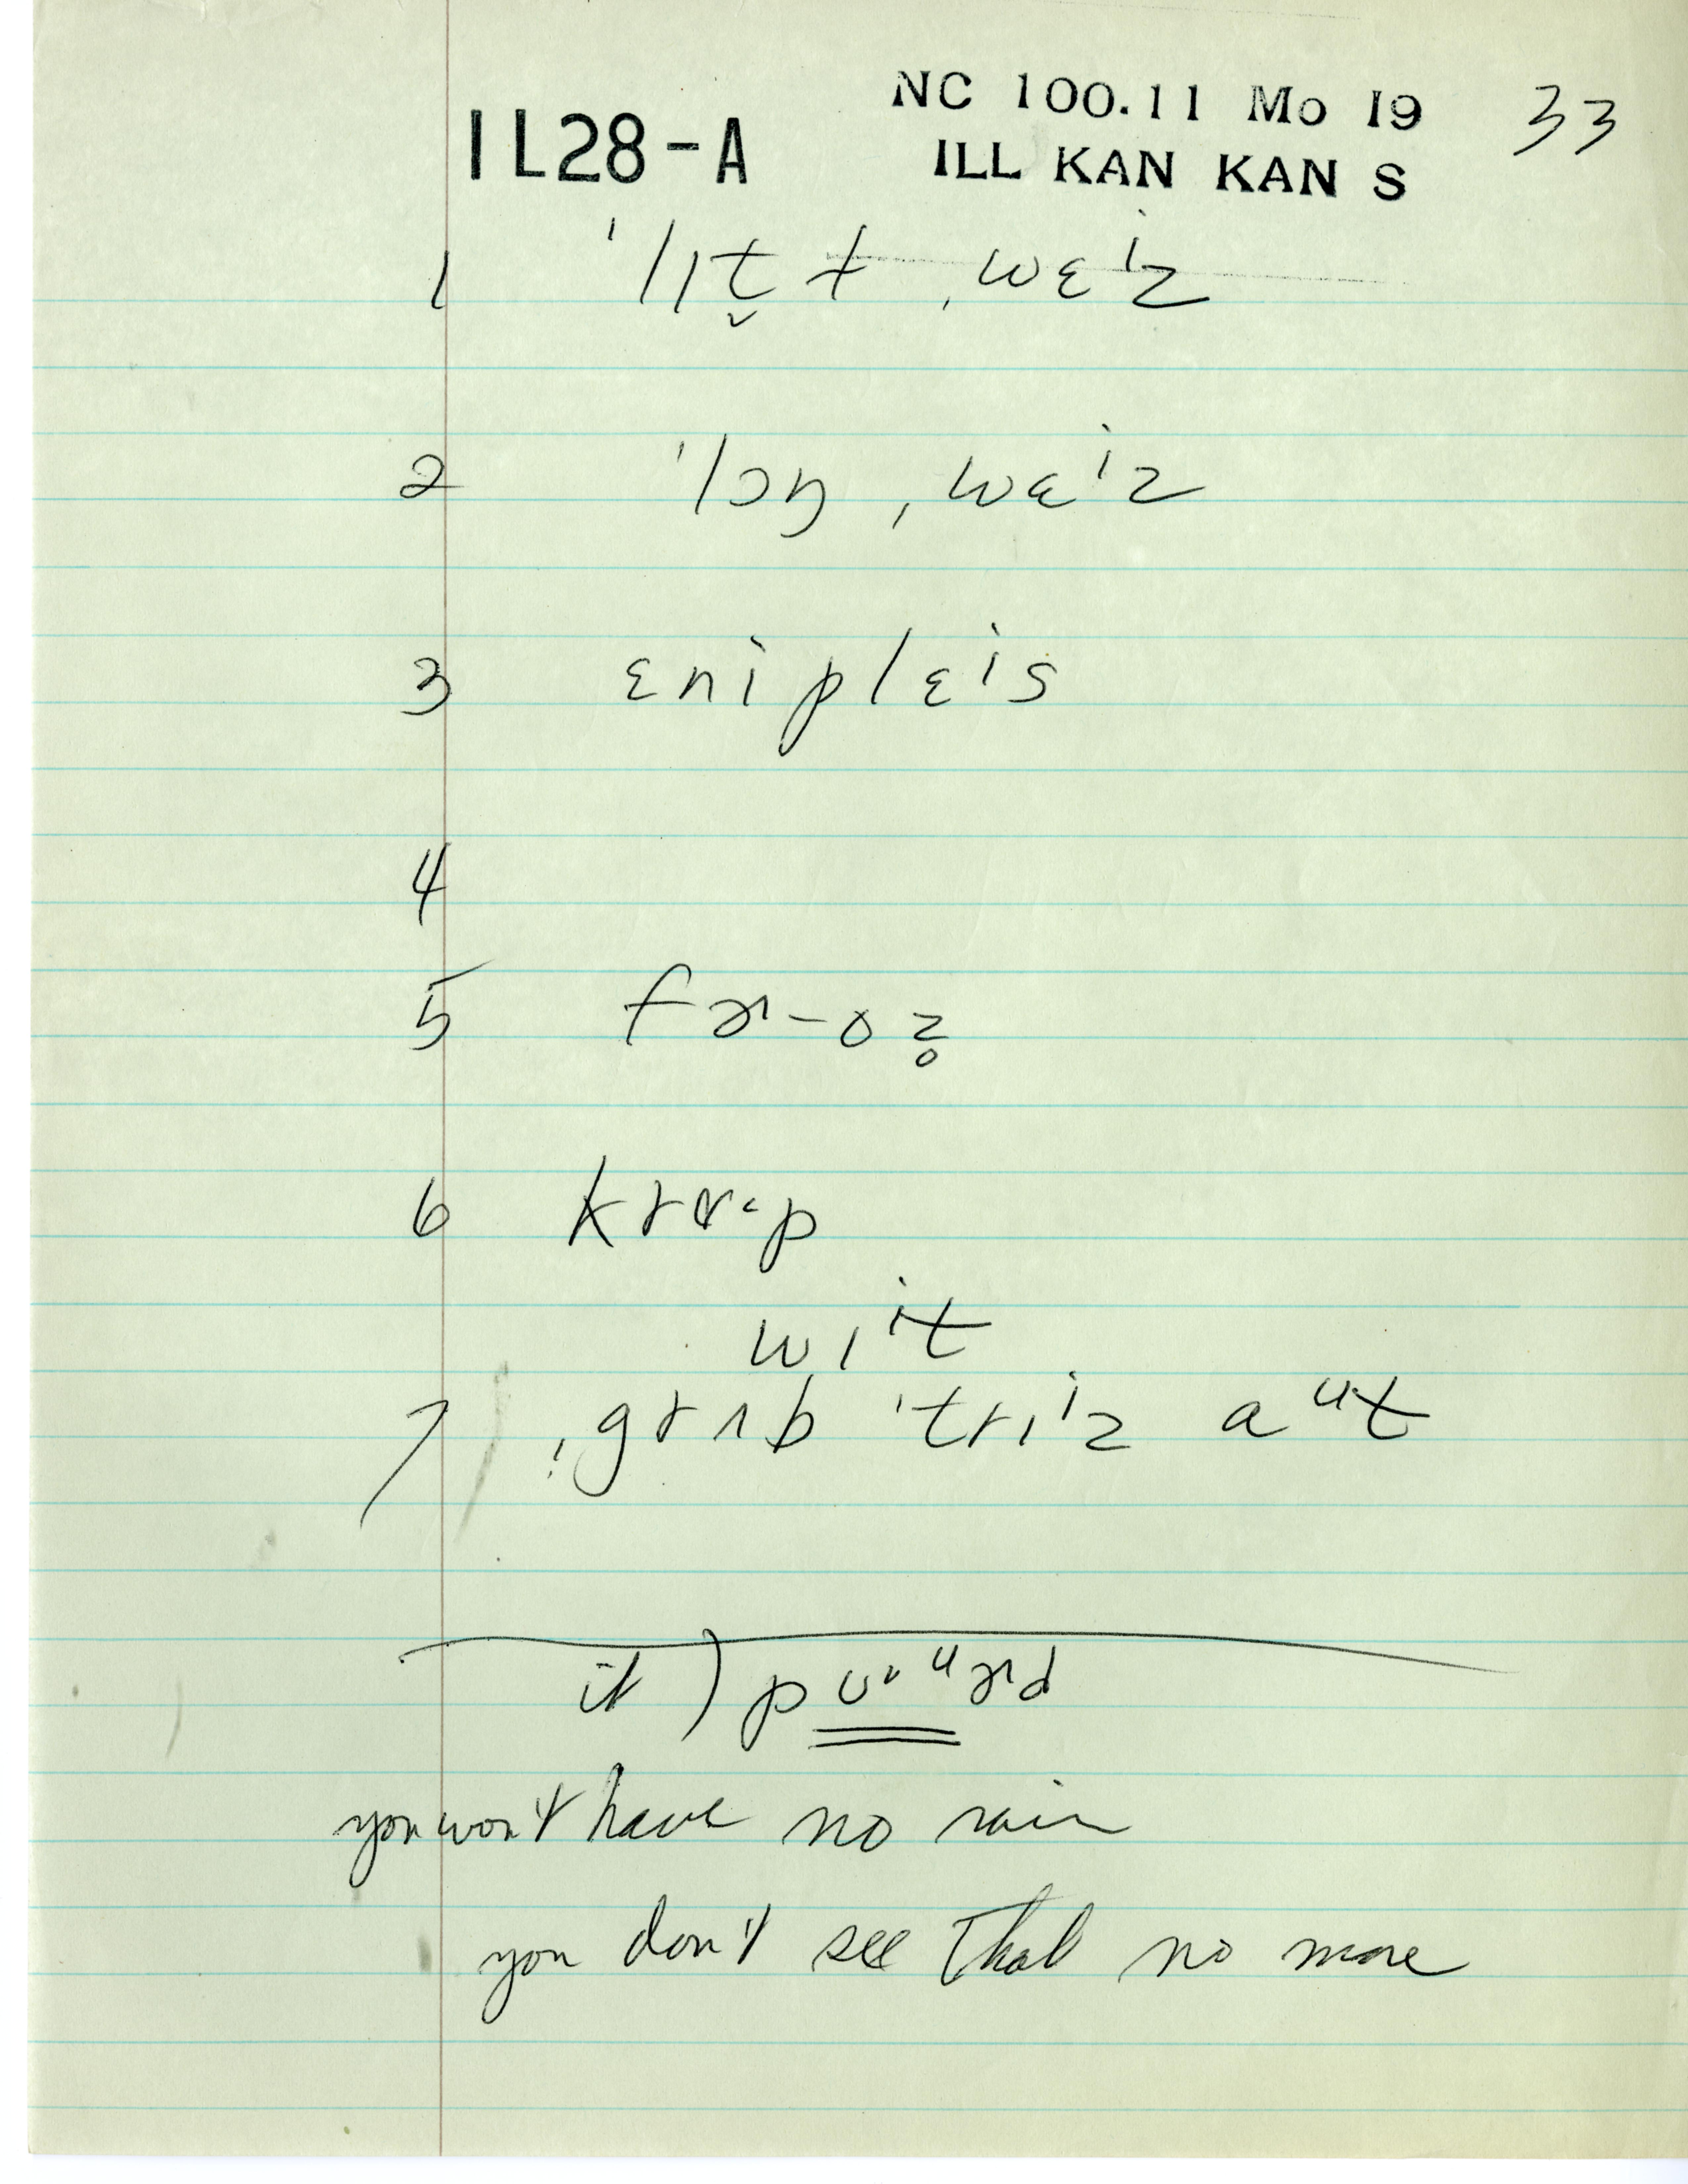 NC 100.11 Mo 19 33
IL28-A ILL KAN KAN S
1 ˈlɪt̬ ɫ ˌwɛⁱz
2 ˈlɔŋ ˌwɛⁱz
3 ɛni plɛⁱs
4
5 fɚ-oz̥
6
wɪⁱt
7 ˌgrʌb ˈtrɪⁱz aᵘt
it)
you won't have no rain
you don't see that no more